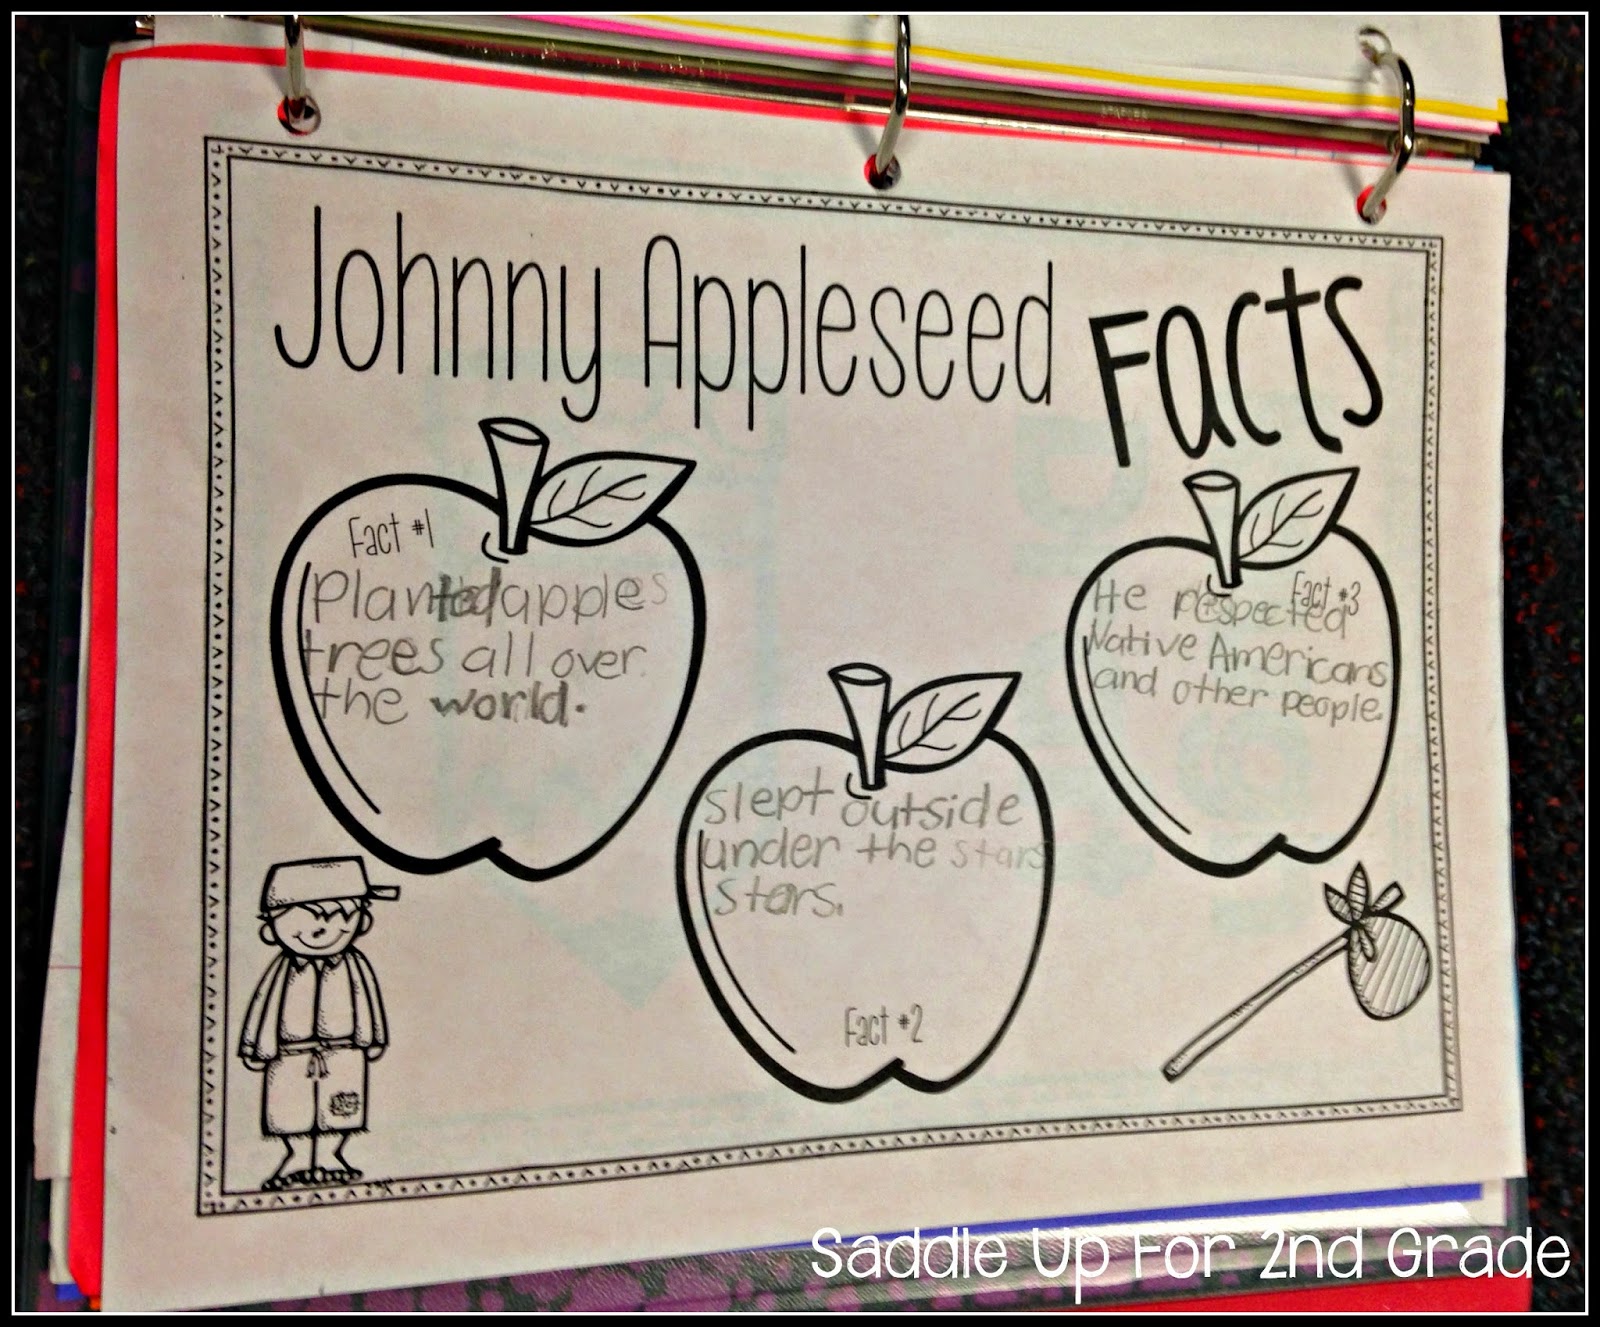 Johnny Appleseed Facts
Fact #1
Planted apples
trees all over
the world.
slept outside
under the stars
stars.
Fact #2
Fact #3
He respected
Native Americans
and other people.
Saddle Up For 2nd Grade